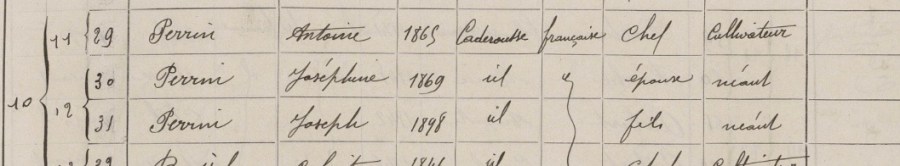 11 29 Perrin Antoine 1865 Caderousse française chef cultivateur
30 Perrin Joséphine 1869 id " épouse néant
10 12
31 Perrin Joseph 1898 id fils néant